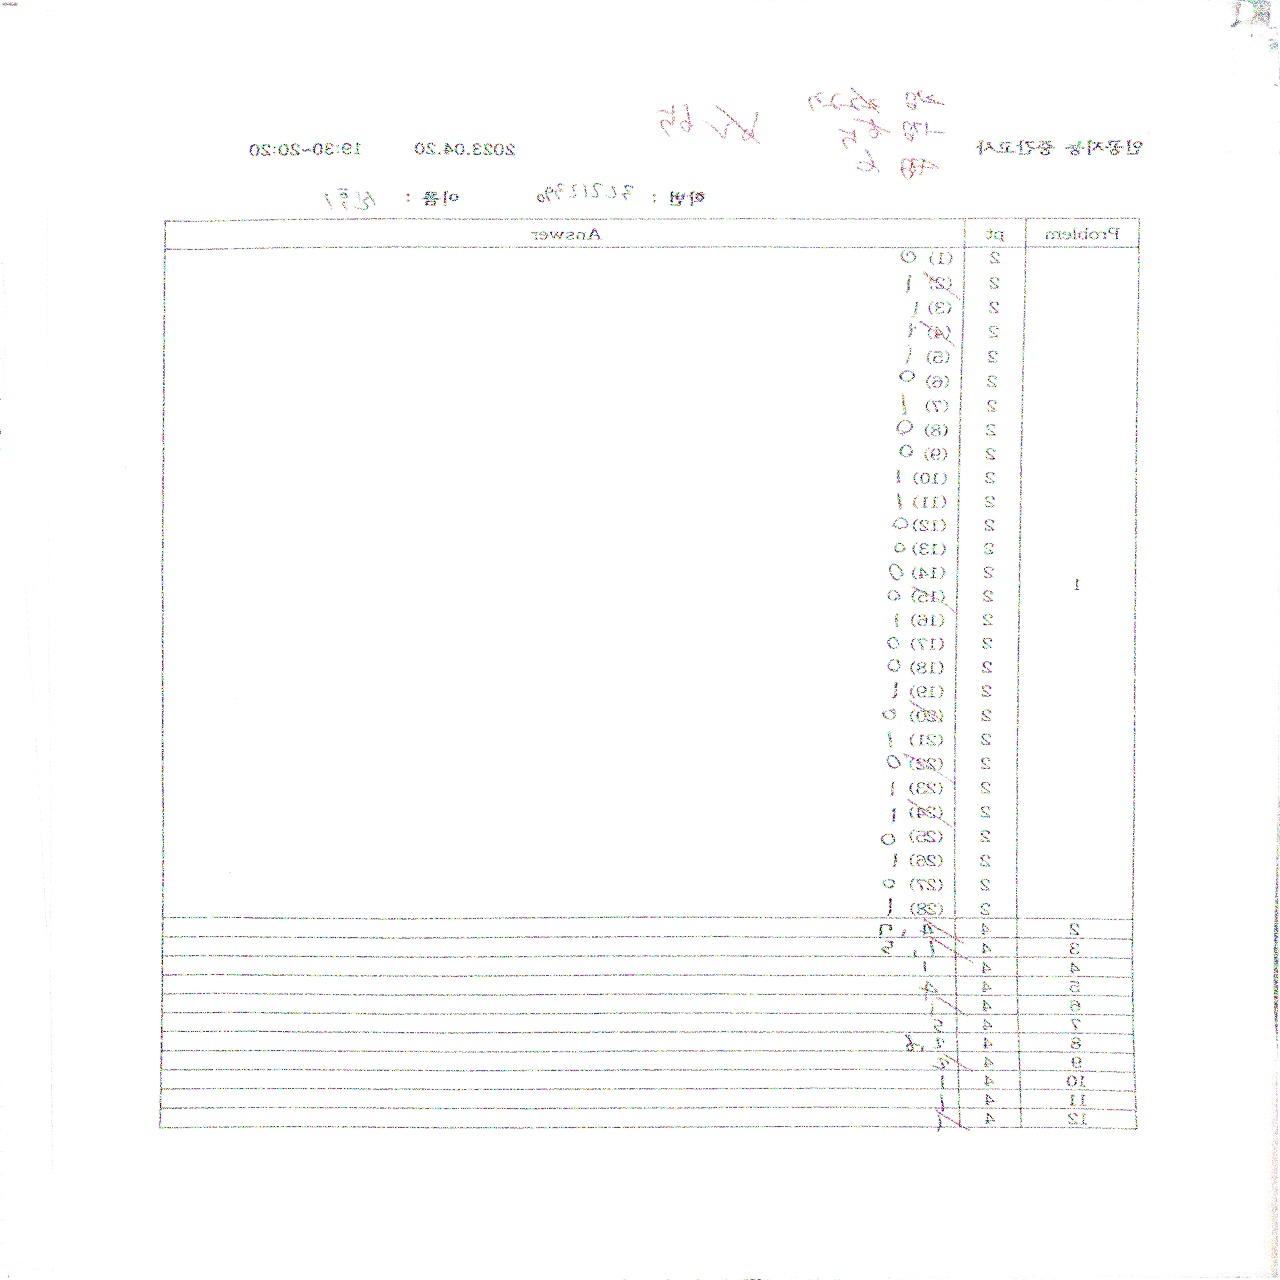 인공지능 중간고사 2023.04.20 19:30~20:20
학번 : 이름 :
Problem pt Answer
1
2 (1) 0
2 (2) 1
2 (3) 1
2 (4) 1
2 (5) 1
2 (6) 0
2 (7) 1
2 (8) 0
2 (9) 0
2 (10) 1
2 (11) 1
2 (12) 0
2 (13) 0
2 (14) 0
2 (15) 0
2 (16) 1
2 (17) 0
2 (18) 0
2 (19) 1
2 (20) 0
2 (21) 1
2 (22) 0
2 (23) 1
2 (24) 1
2 (25) 0
2 (26) 1
2 (27) 0
2 (28) 1
2 4
3 4
4 4
5 4 4
6 4
7 4
8 4
9 4
10 4
11 4
12 4